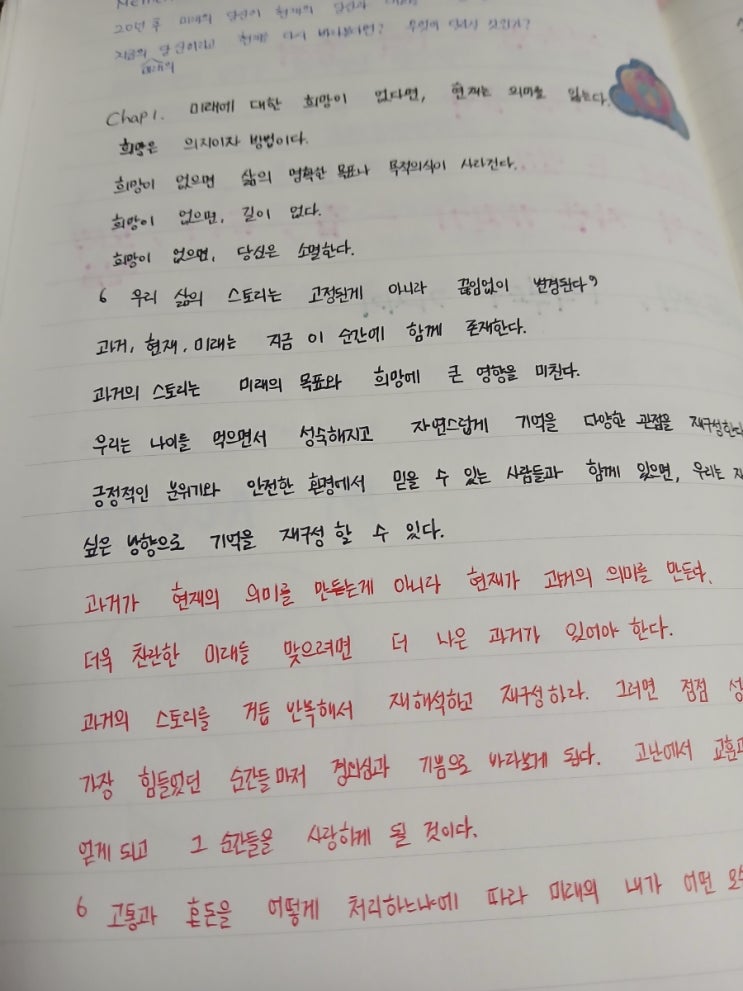 20년 후 미래의 당신이 현재의 당신과
지금의 당신이라고 현재를 다시 바라본다면? 무엇이 달라질 것인가?
Chap 1. 미래에 대한 희망이 없다면, 현재는 의미를 잃는다.
희망은 의지이자 방법이다.
희망이 없으면 삶의 명확한 목표나 목적의식이 사라진다.
희망이 없으면, 길이 없다.
희망이 없으면, 당신은 소멸한다.
6 우리 삶의 스토리는 고정된게 아니라 끊임없이 변경된다 9
과거, 현재, 미래는 지금 이 순간에 함께 존재한다.
과거의 스토리는 미래의 목표와 희망에 큰 영향을 미친다.
우리는 나이를 먹으면서 성숙해지고 자연스럽게 기억을 다양한 관점을 재구성한다
긍정적인 분위기와 안전한 환경에서 믿을 수 있는 사람들과 함께 있으면, 우리는
싶은 방향으로 기억을 재구성 할 수 있다.
과거가 현재의 의미를 만드는게 아니라 현재가 과거의 의미를 만든다.
더욱 찬란한 미래를 맞으려면 더 나은 과거가 있어야 한다.
과거의 스토리를 거듭 반복해서 재해석하고 재구성하라. 그러면 점점 성
가장 힘들었던 순간들마저 경외심과 기쁨으로 바라보게 된다. 고난에서 교훈과
얻게 되고 그 순간들을 사랑하게 될 것이다.
6 고통과 혼돈을 어떻게 처리하느냐에 따라 미래의 내가 어떤